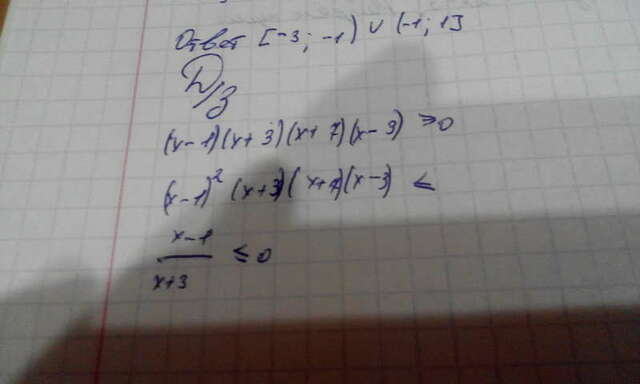 Ответ [-3; -1) ∪ (-1; 1]
Д/З
(x-1)(x+3)(x+7)(x-3) ≥0
(x-1)² (x+3)(x+7)(x-3) ≤
x-1
x+3 ≤0